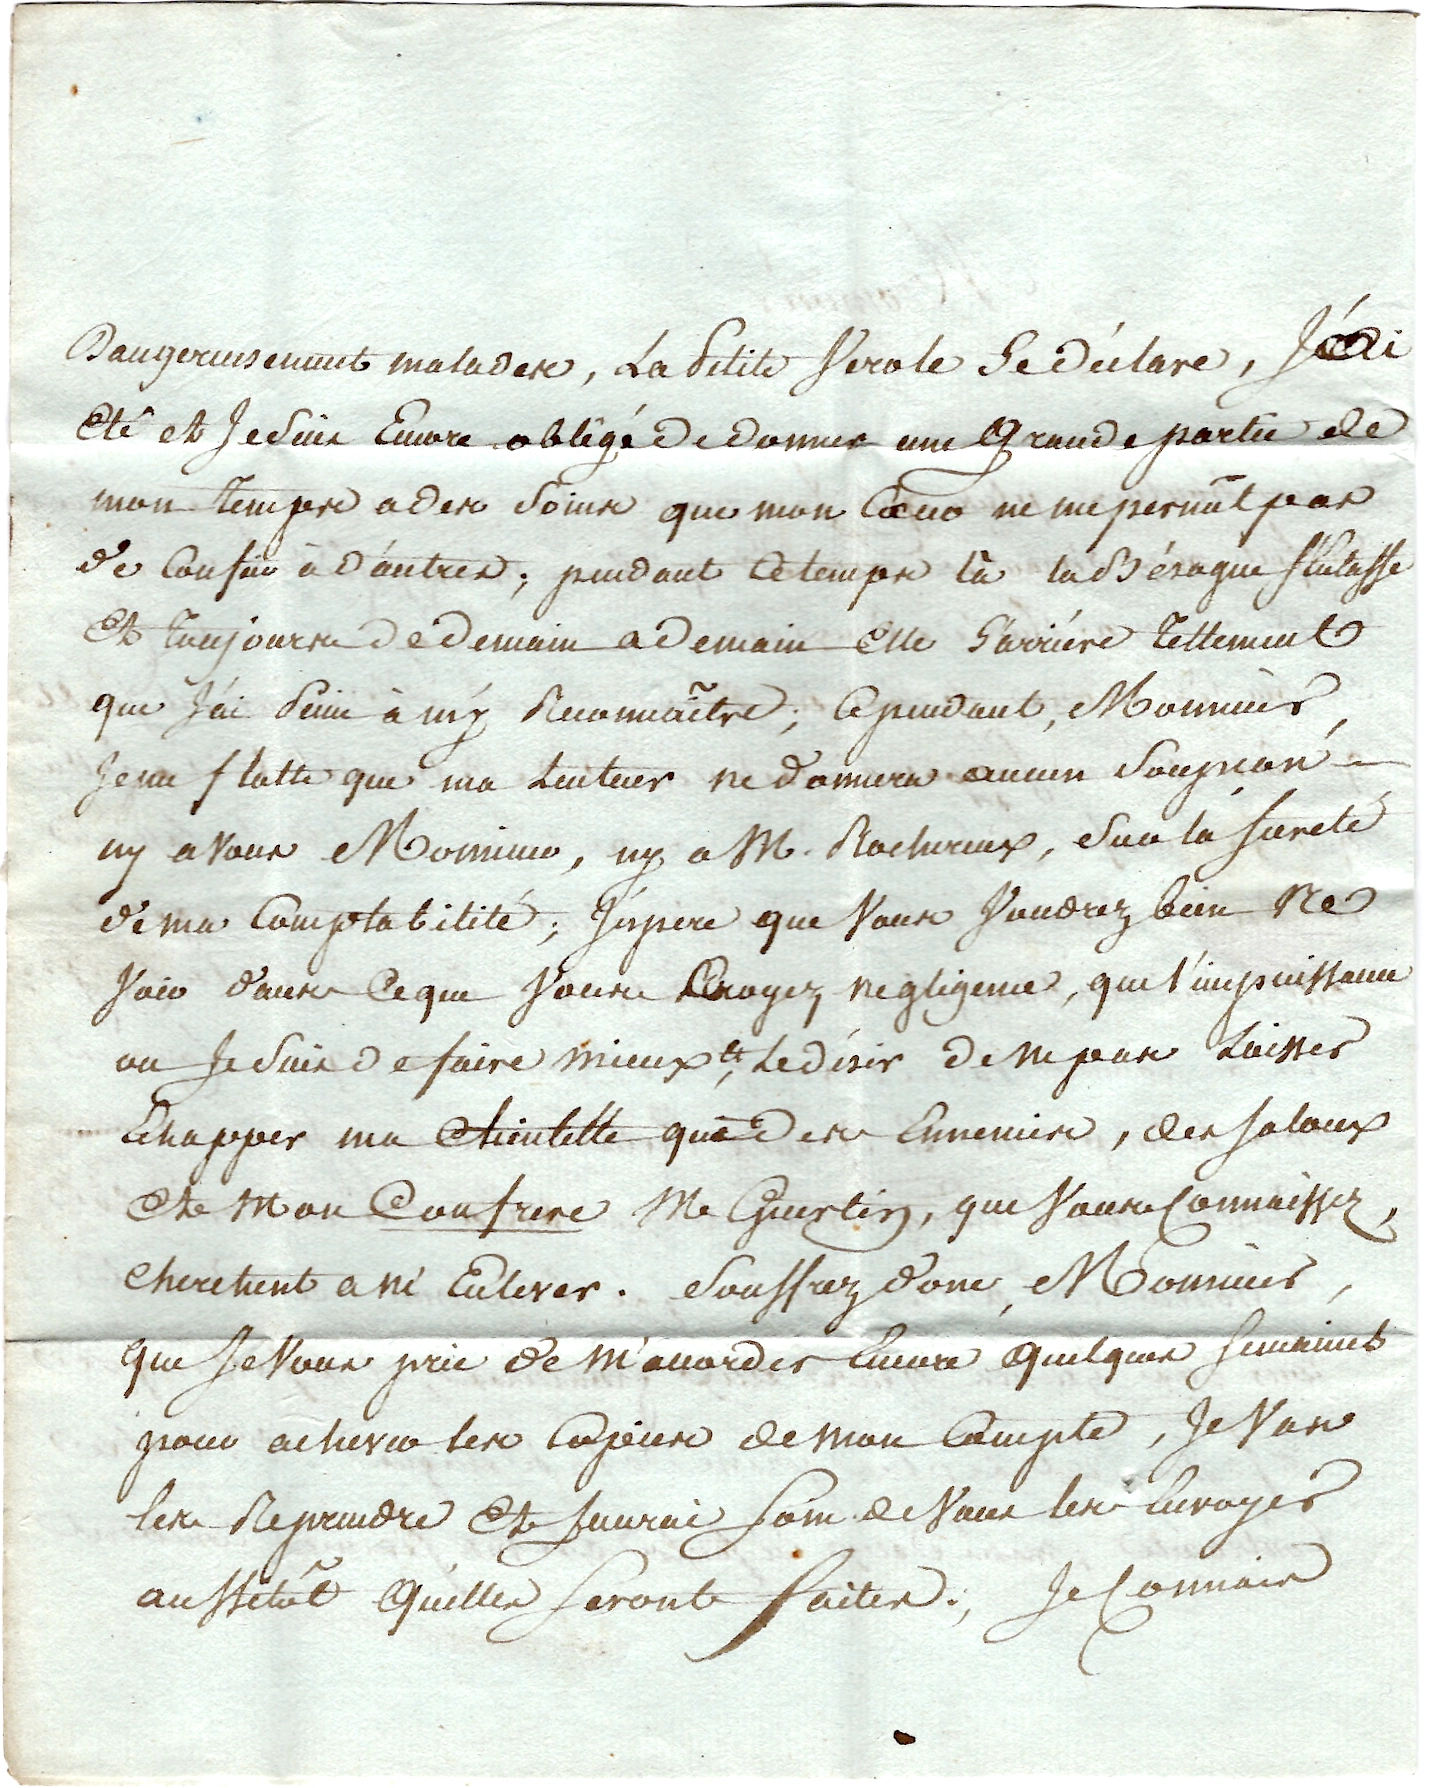 Dangereusement malades, La petite Verole Se déclare, J'ai
été et Je Suis Encore obligé de donner une Grande partie de
mon temps a des Soins que mon Cœur ne me permêt pas
de Confier à d'autres; pendant Ce temps là la Bésogne S'entasse
et toujours de demain a demain Elle S'arriére tellement
que J'ai peine à m'y Reconnaître; Cependant, Monsieur,
Je me flatte que ma Lenteur ne donnera aucun Soupçon
ny a Vous Monsieur, ny a M. Rochereux, Sur la Sureté
de ma Comptabilité; J'éspere que Vous Voudrez bien Ne
Voir dans Ce que Vous Croyez negligence, que l'impuissance
ou Je Suis de faire mieux et, Le désir de ne pas Laisser
Echapper ma Clientelle que des Ennemis, des Jaloux
Et Mon Confrere Me Guerlin, que Vous Connaissez,
Cherchent a m'Enlever. Souffrez donc, Monsieur,
que Je Vous prie de M'accorder Encore quelques Semaines
pour achever les Copies de Mon Compte, Je Vais
les Reprendre et J'aurai Soin de Vous les Envoyer
aussitôt Qu'elles Seront faites; Je Connais